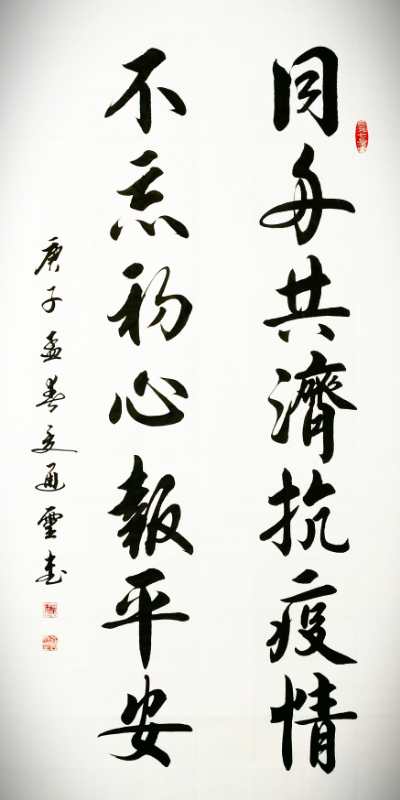 同舟共濟抗疫情
不忘初心報平安
庚子孟春夏通雲書